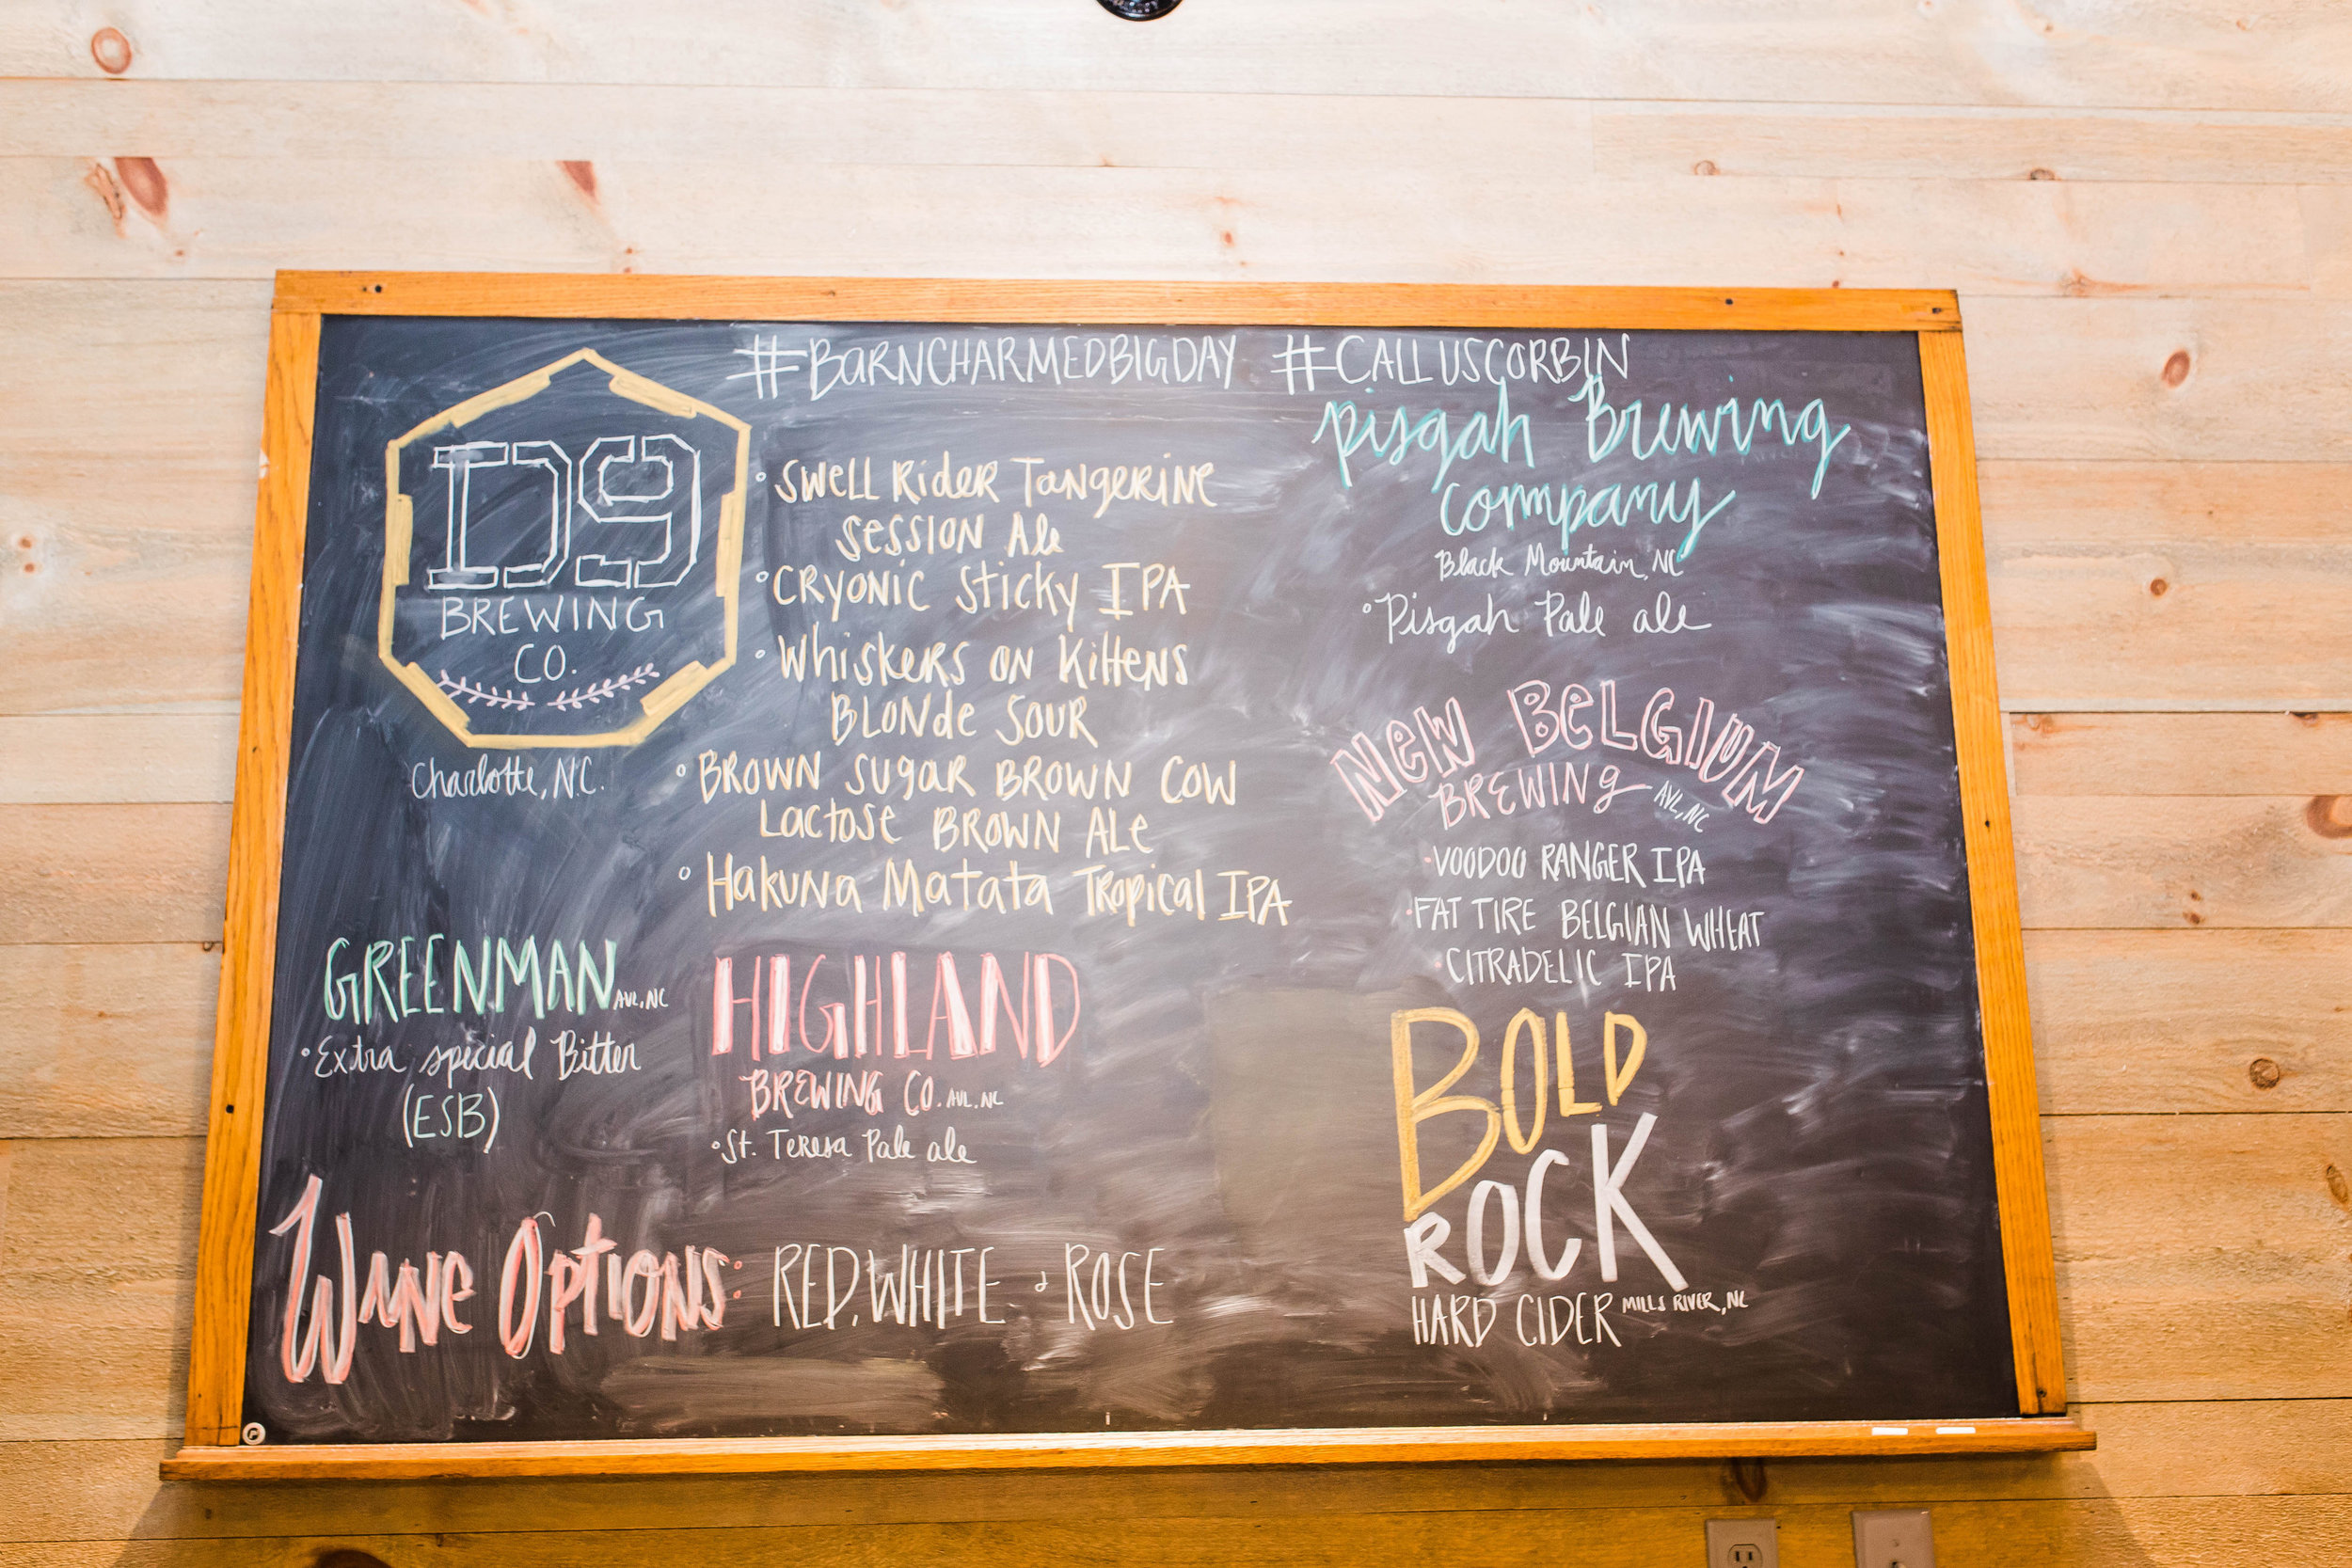 #BARNCHARMEDBIGDAY #CALLUSCORBIN
D9
BREWING
CO.
Charlotte, N.C.
° SWELL RIDER TANGERINE
SESSION ALE
° CRYONIC STICKY IPA
° WHISKERS ON KITTENS
BLONDE SOUR
° BROWN SUGAR BROWN COW
LACTOSE BROWN ALE
° HAKUNA MATATA TROPICAL IPA
Pisgah Brewing
Company
Black Mountain, NC
° Pisgah Pale ale
NEW BELGIUM
BREWING AVL, NC
· VOODOO RANGER IPA
· FAT TIRE BELGIAN WHEAT
· CITRADELIC IPA
GREENMAN AVL, NC
· Extra special Bitter
(ESB)
HIGHLAND
BREWING CO. AVL, NC
° St. Teresa Pale ale
BOLD
ROCK
HARD CIDER MILLS RIVER, NC
WINE OPTIONS: RED, WHITE & ROSE